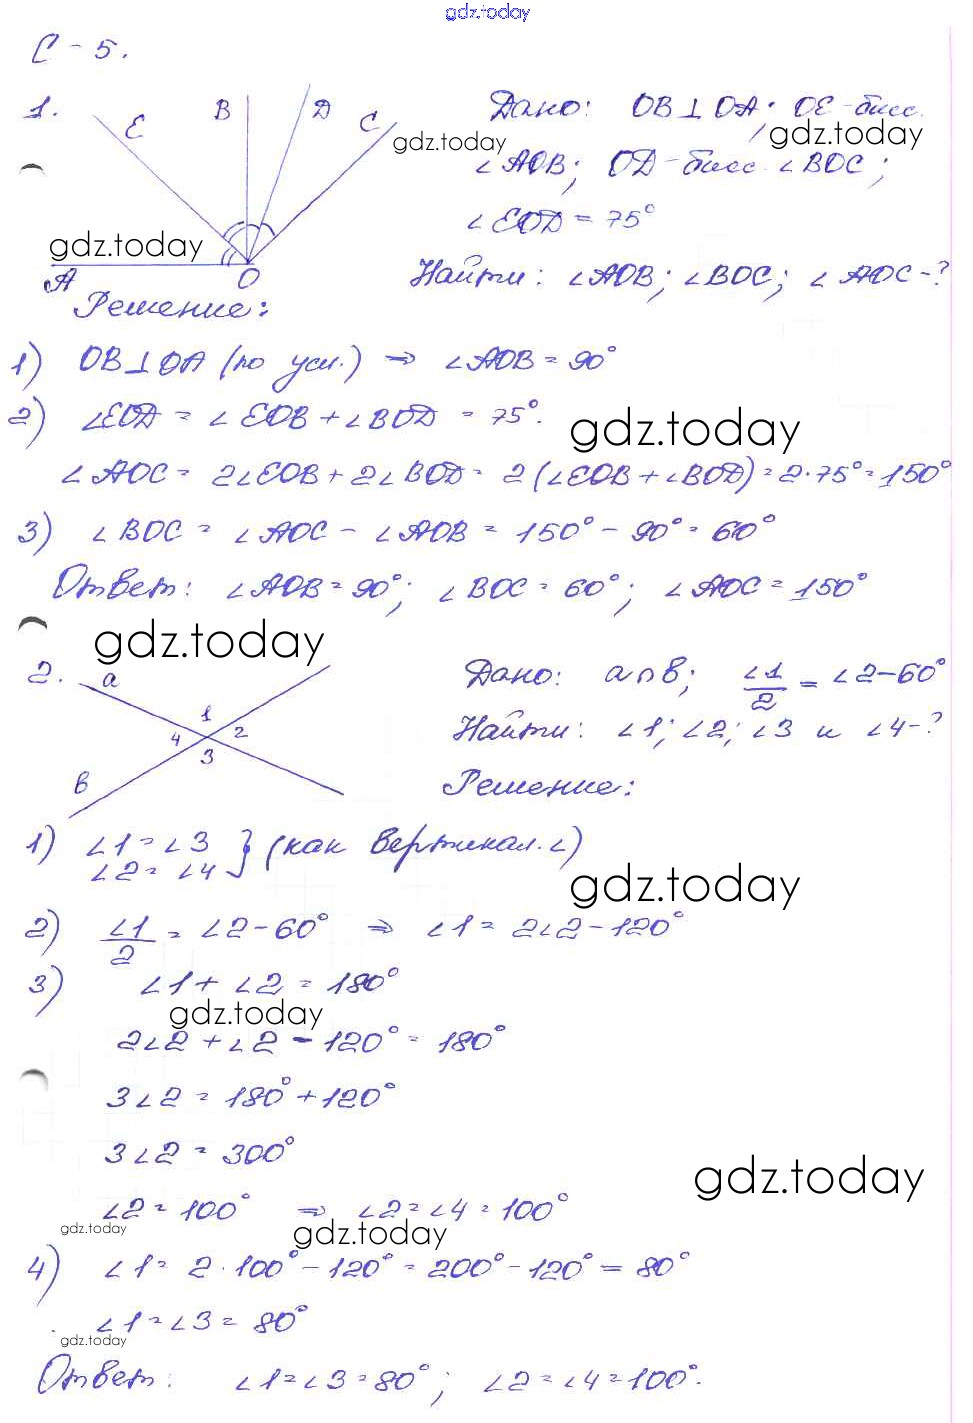 gdz.today
С-5.
1.
E B D C
A O
Дано: OB⊥OA; OE-бисс.
gdz.today gdz.today
∠AOB; OD-бисс. ∠BOC;
∠EOD = 75°
gdz.today
Найти: ∠AOB; ∠BOC; ∠AOC-?
Решение:
1) OB⊥OA (по усл.) ⇒ ∠AOB = 90°
2) ∠EOD = ∠EOB + ∠BOD = 75°.
gdz.today
∠AOC = 2∠EOB + 2∠BOD = 2(∠EOB + ∠BOD) = 2·75° = 150°
3) ∠BOC = ∠AOC - ∠AOB = 150° - 90° = 60°
Ответ: ∠AOB = 90°; ∠BOC = 60°; ∠AOC = 150°
gdz.today
2.
a
1
4 2
3
в
Дано: a∩в; ∠1/2 = ∠2-60°
Найти: ∠1; ∠2; ∠3 и ∠4-?
Решение:
1) ∠1 = ∠3
∠2 = ∠4 } (как вертикал. ∠)
gdz.today
2) ∠1/2 = ∠2-60° ⇒ ∠1 = 2∠2-120°
3) ∠1 + ∠2 = 180°
gdz.today
2∠2 + ∠2 - 120° = 180°
3∠2 = 180° + 120°
3∠2 = 300°
gdz.today
∠2 = 100° ⇒ ∠2 = ∠4 = 100°
gdz.today gdz.today
4) ∠1 = 2·100° - 120° = 200° - 120° = 80°
∠1 = ∠3 = 80°
gdz.today
Ответ: ∠1 = ∠3 = 80°; ∠2 = ∠4 = 100°.